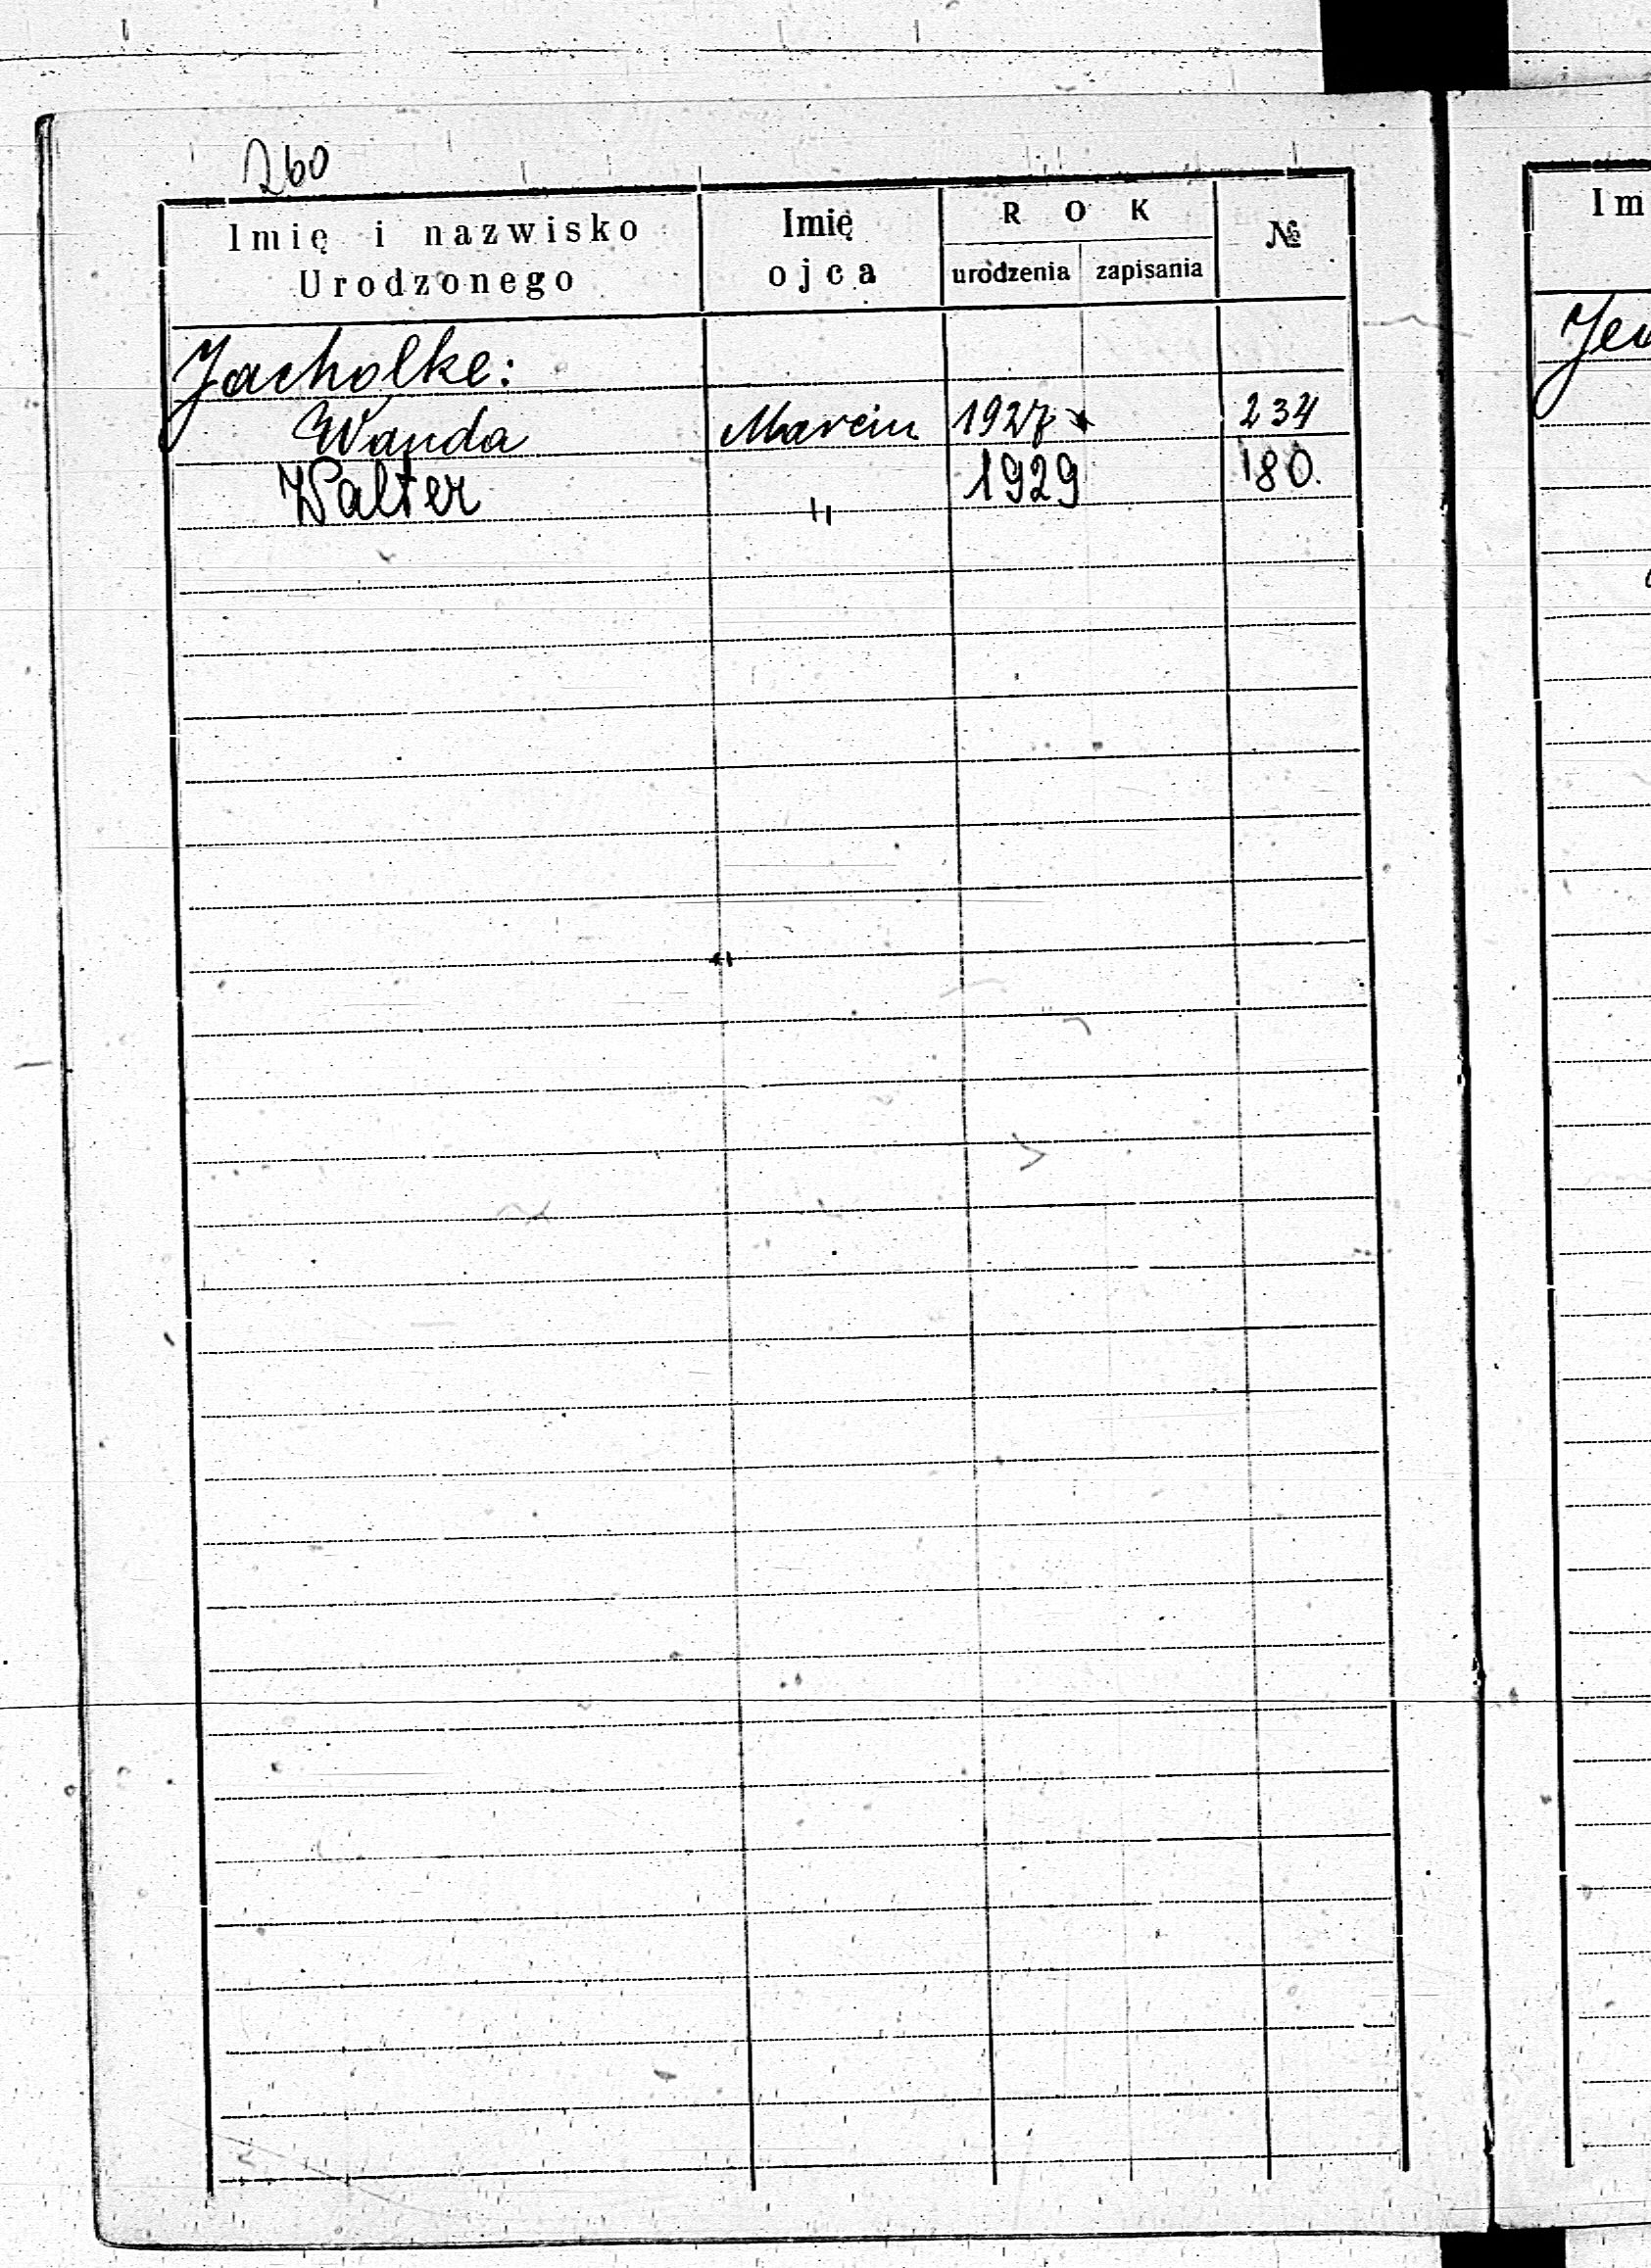 260
Imię i nazwisko Urodzonego Imię ojca ROK urodzenia zapisania №
Jacholke:
Wanda Marcin 1927 234
Walter " 1929 180.
Im
Jew